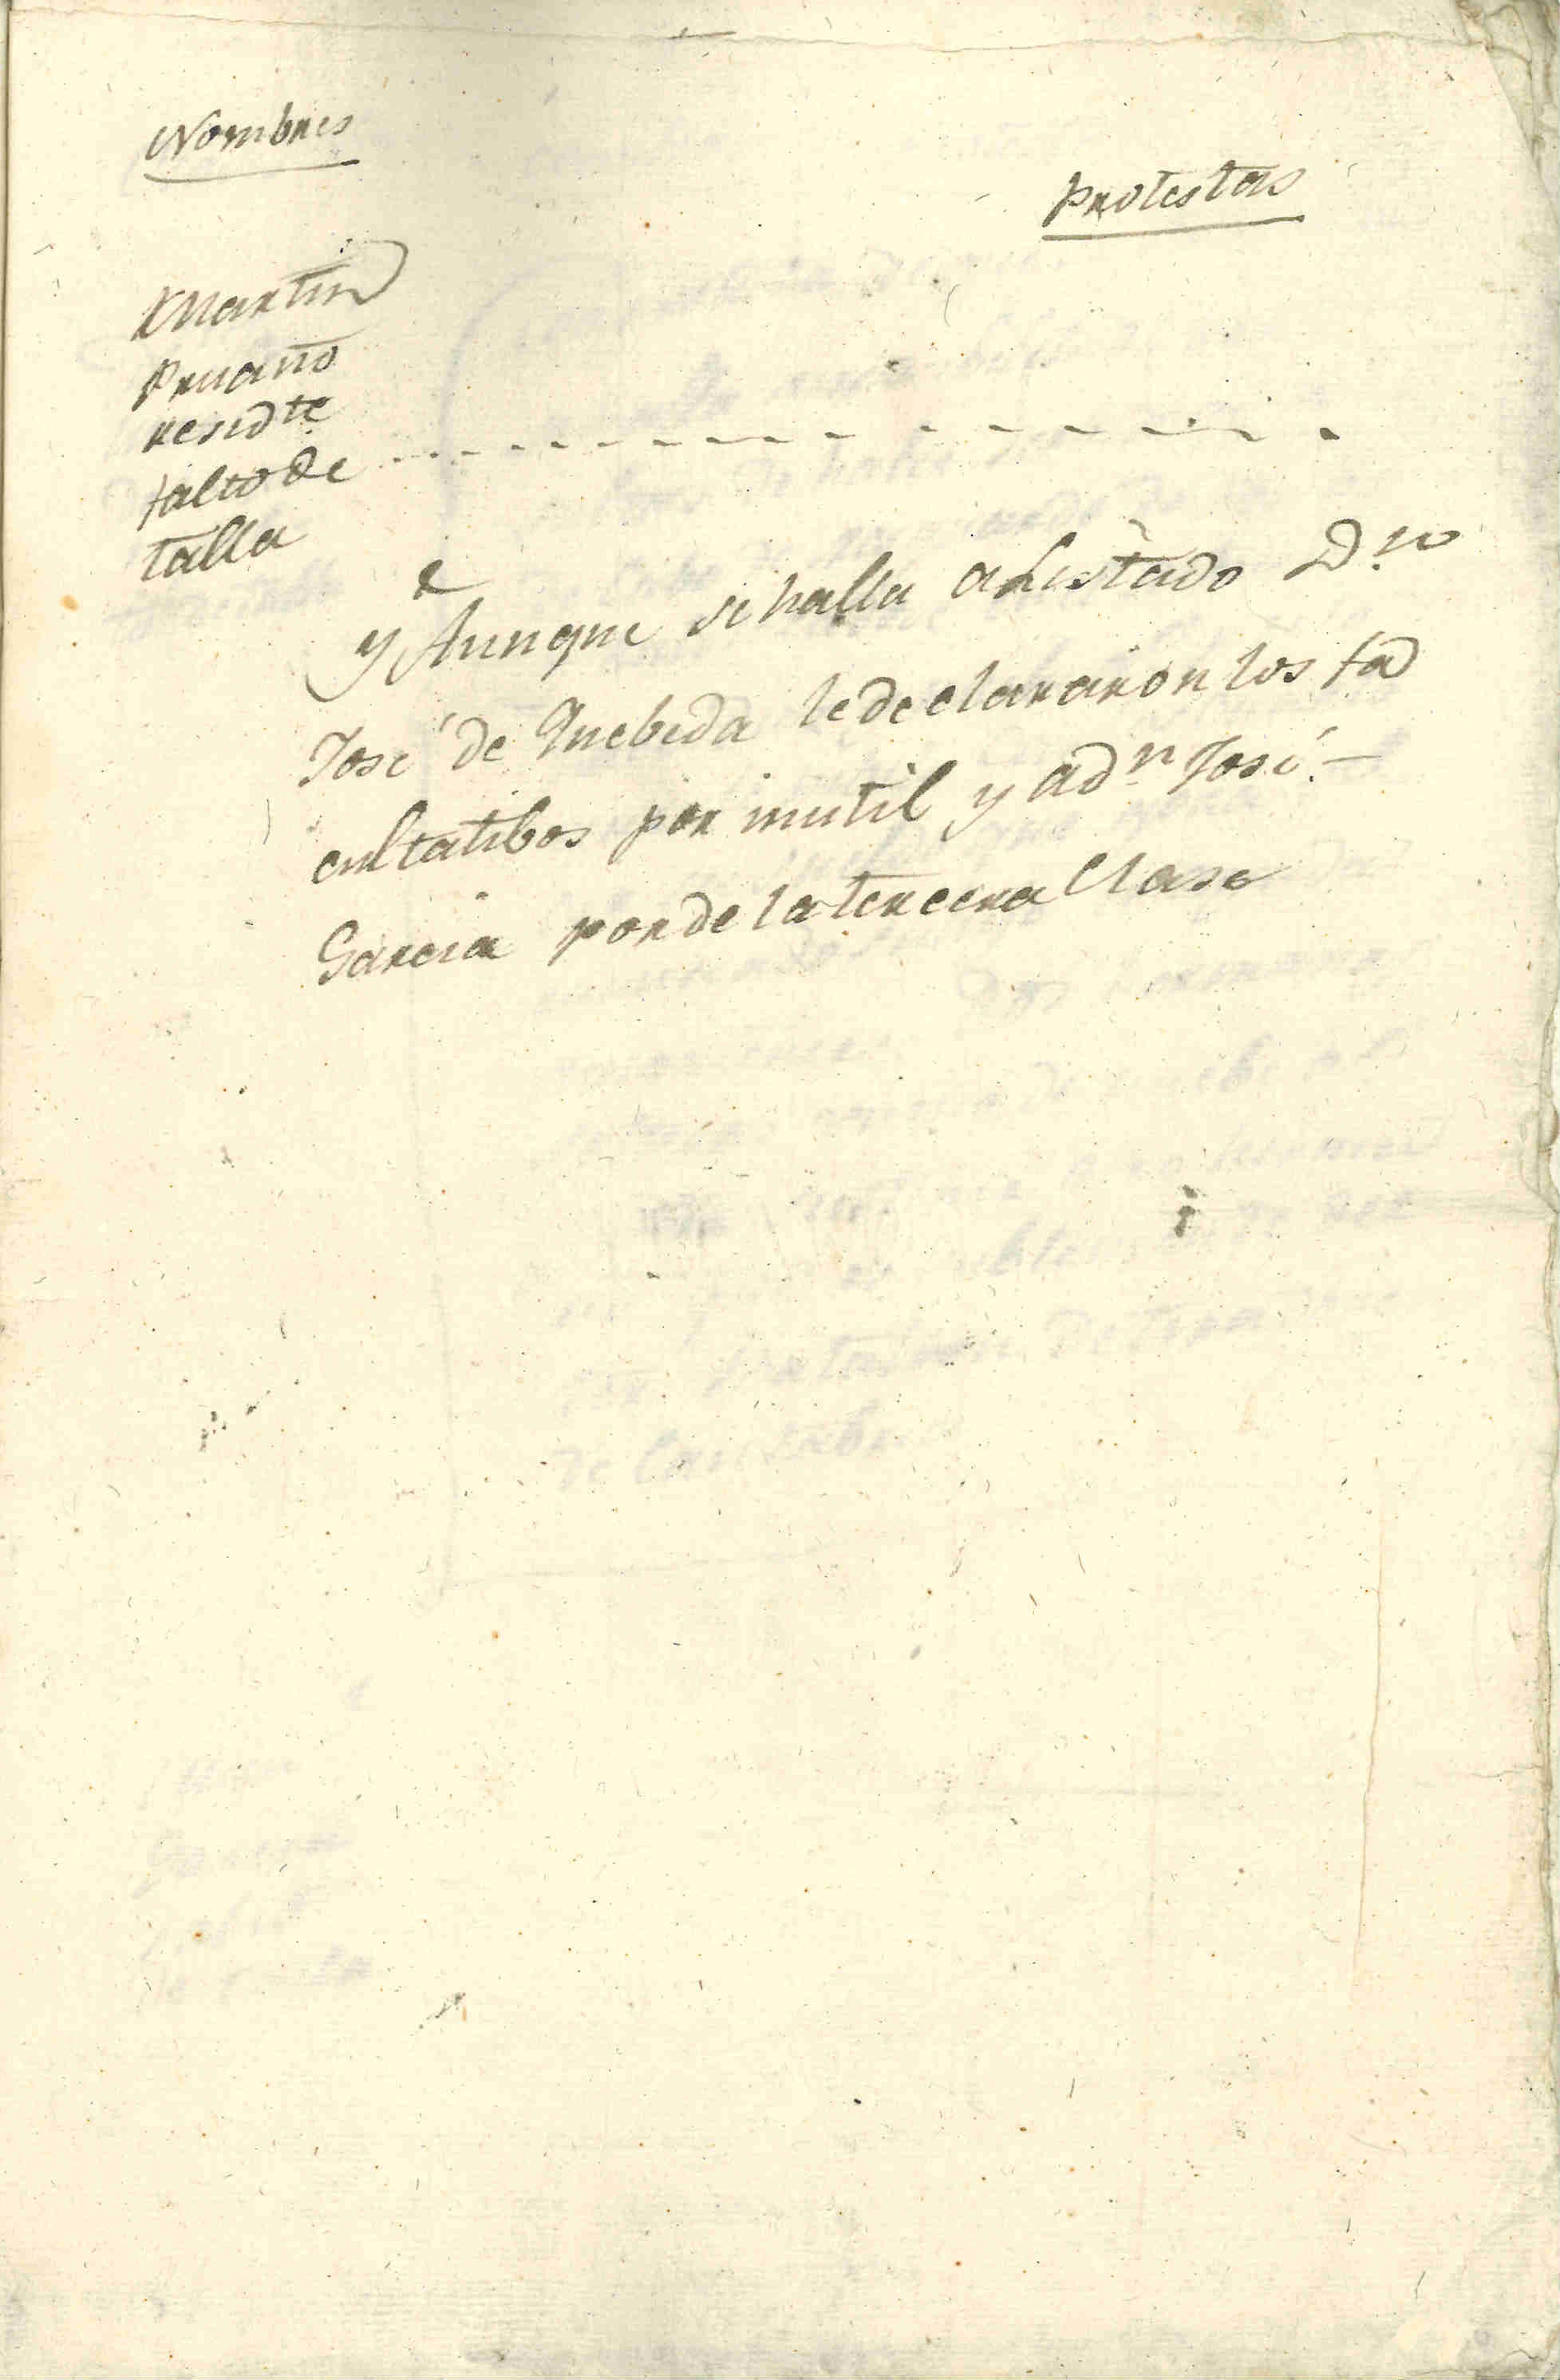 Nombres
Protestas
Martin
Pruaño
residte
falto de
talla
y Aunque se halla aListado Dn
José de Quebeda le declararon los fa
cultatibos por inutil y a Dn José
Garcia por de la tercera Clase